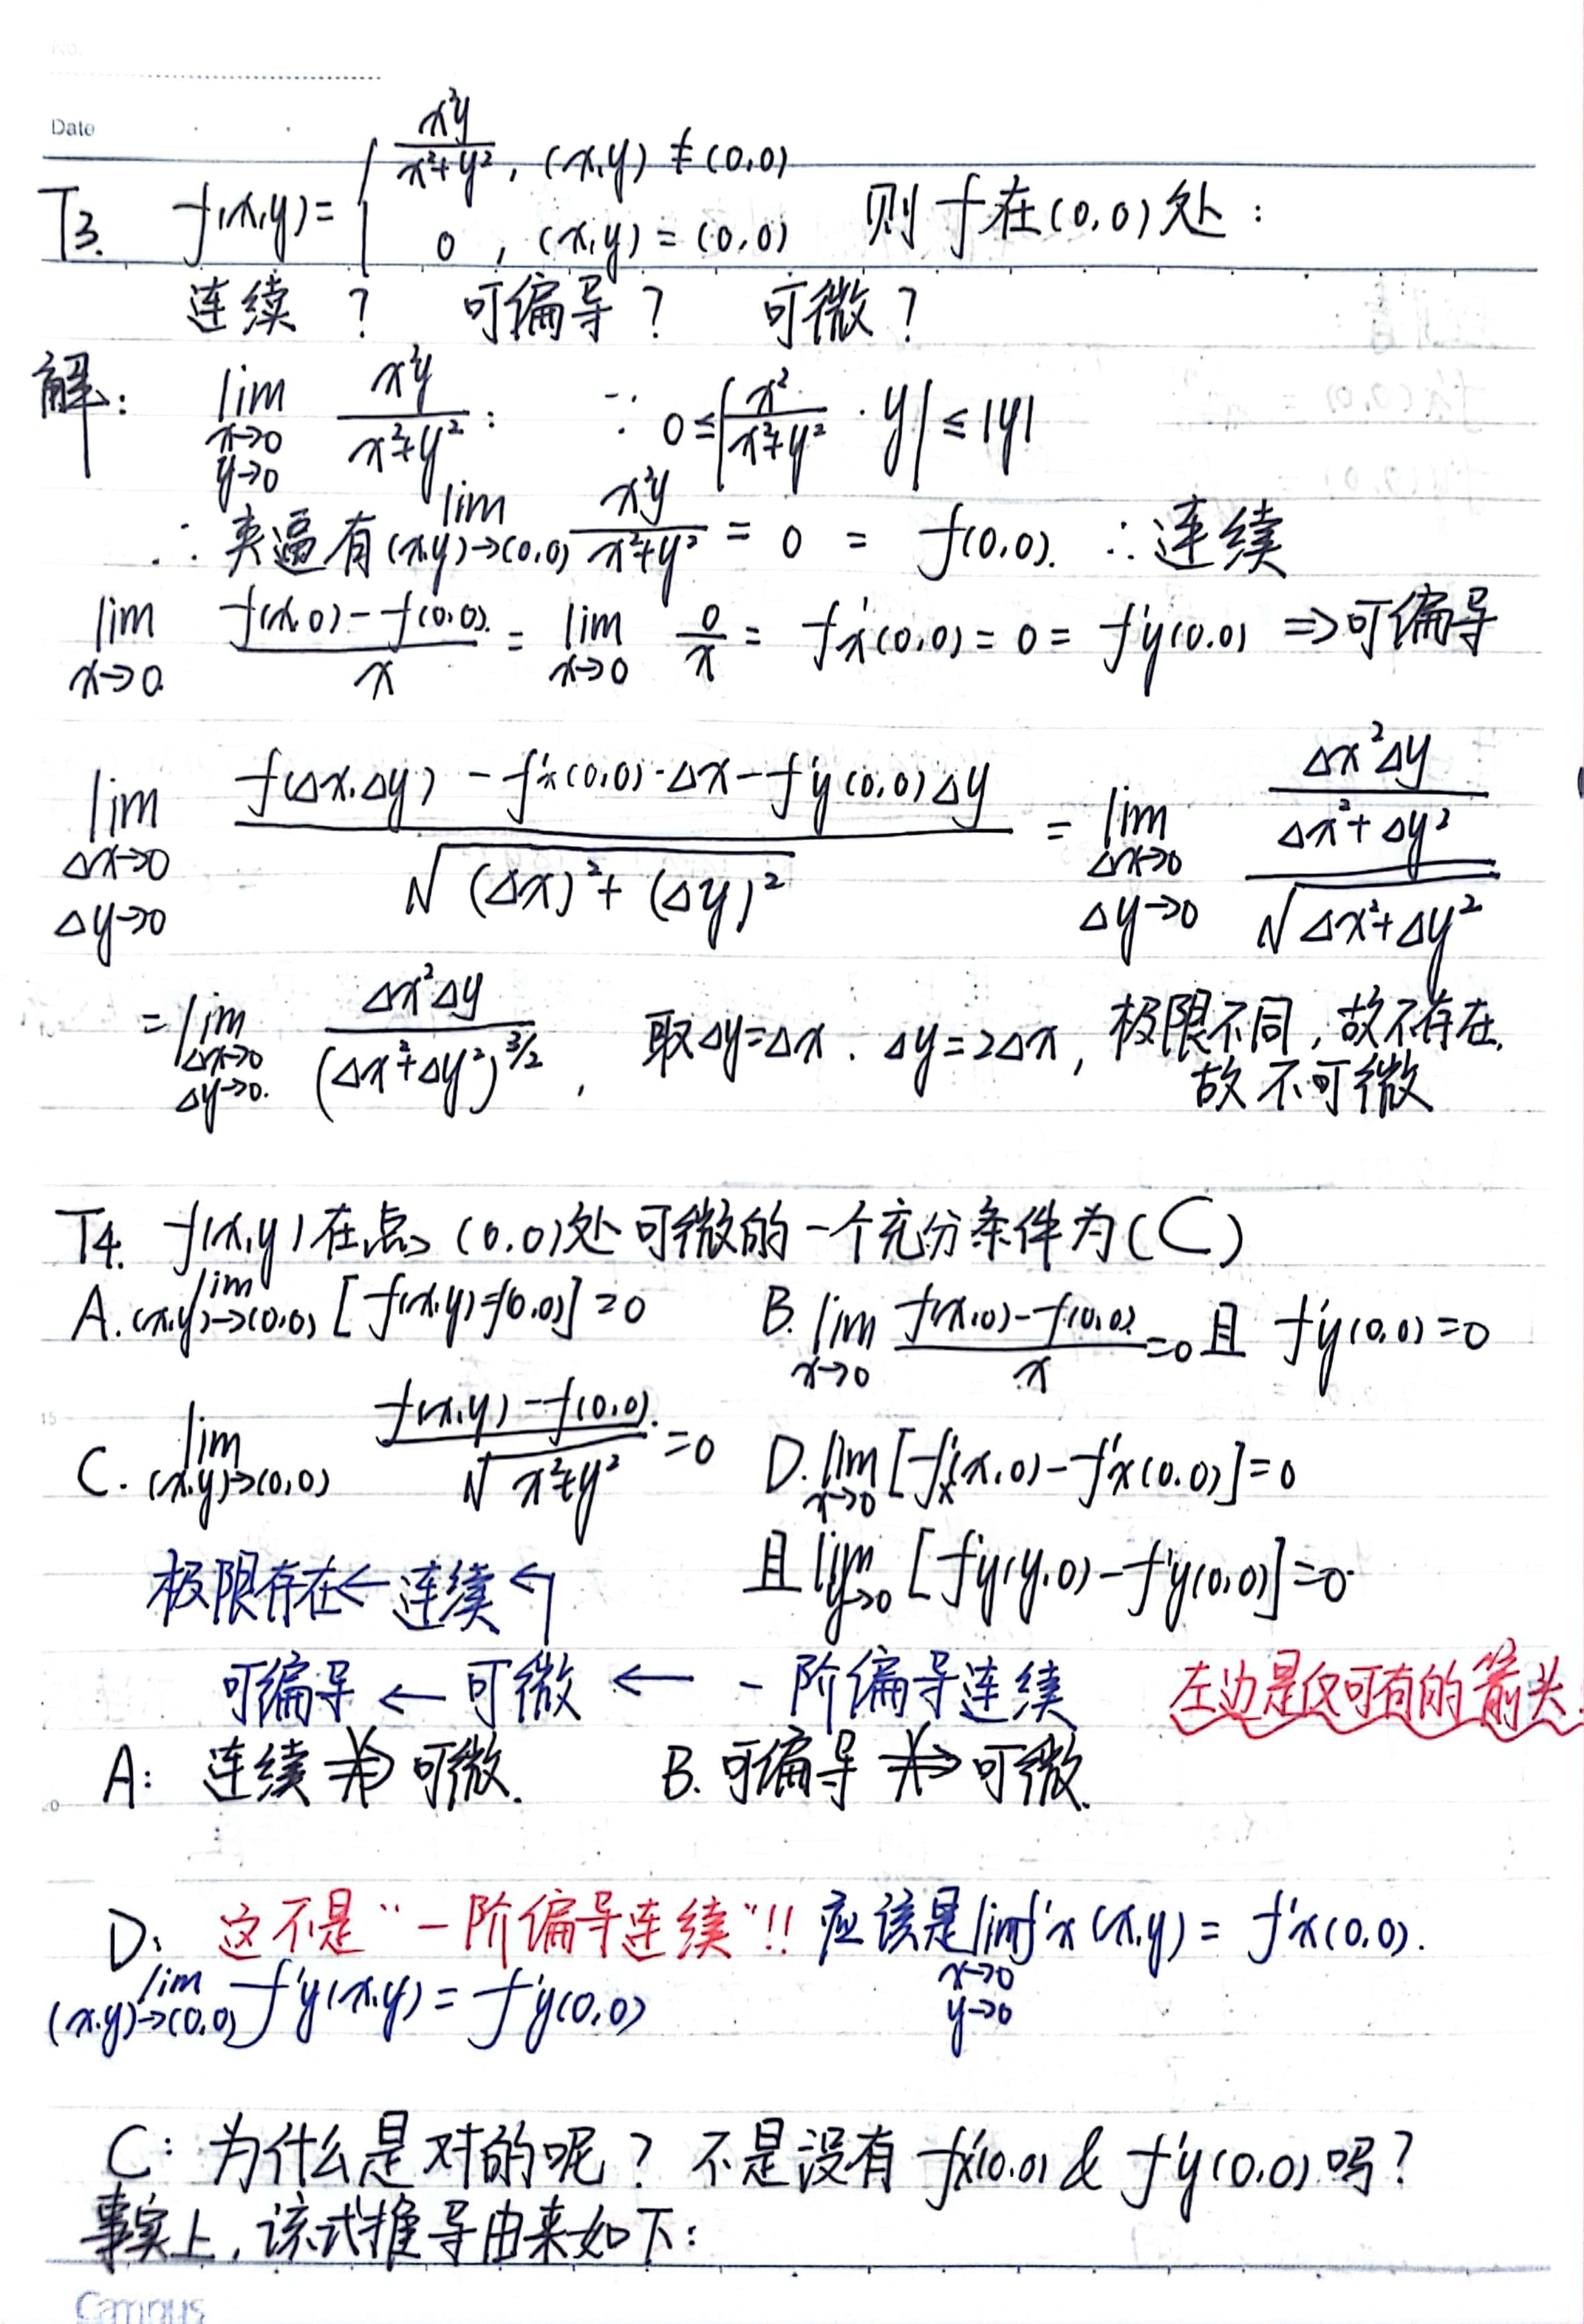 No.
Date
T3. f(x,y)= { x²y/(x²+y²), (x,y)≠(0,0)
0, (x,y)=(0,0) 则f在(0,0)处:
连续? 可偏导? 可微?
解: lim x→0 y→0 x²y/(x²+y²): ∵ 0≤|x²/(x²+y²)·y|≤|y|
∴夹逼有 lim (x,y)→(0,0) x²y/(x²+y²) = 0 = f(0,0). ∴连续
lim x→0 (f(x,0)-f(0,0))/x = lim x→0 0/x = f'x(0,0)=0=f'y(0,0) ⇒可偏导
lim Δx→0 Δy→0 (f(Δx,Δy)-f'x(0,0)·Δx-f'y(0,0)Δy)/√((Δx)²+(Δy)²) = lim Δx→0 Δy→0 (Δx²Δy/(Δx²+Δy²))/√(Δx²+Δy²)
=lim Δx→0 Δy→0. Δx²Δy/(Δx²+Δy²)^(3/2), 取Δy=Δx. Δy=2Δx, 极限不同,故不存在,
故不可微
T4. f(x,y)在点(0,0)处可微的一个充分条件为(C)
A. lim (x,y)→(0,0) [f(x,y)-f(0,0)]=0 B. lim x→0 (f(x,0)-f(0,0))/x=0且 f'y(0,0)=0
C. lim (x,y)→(0,0) (f(x,y)-f(0,0))/√(x²+y²)=0 D. lim x→0 [f'x(x,0)-f'x(0,0)]=0
且 lim y→0 [f'y(y,0)-f'y(0,0)]=0
极限存在←连续↰
可偏导←可微←一阶偏导连续 左边是仅可有的箭头.
A: 连续⇏可微. B. 可偏导⇏可微.
D: 这不是“一阶偏导连续”!! 应该是 lim x→0 y→0 f'x(x,y)= f'x(0,0).
lim (x,y)→(0,0) f'y(x,y)=f'y(0,0)
C: 为什么是对的呢? 不是没有 f'x(0,0) & f'y(0,0)吗?
事实上,该式推导由来如下:
Campus